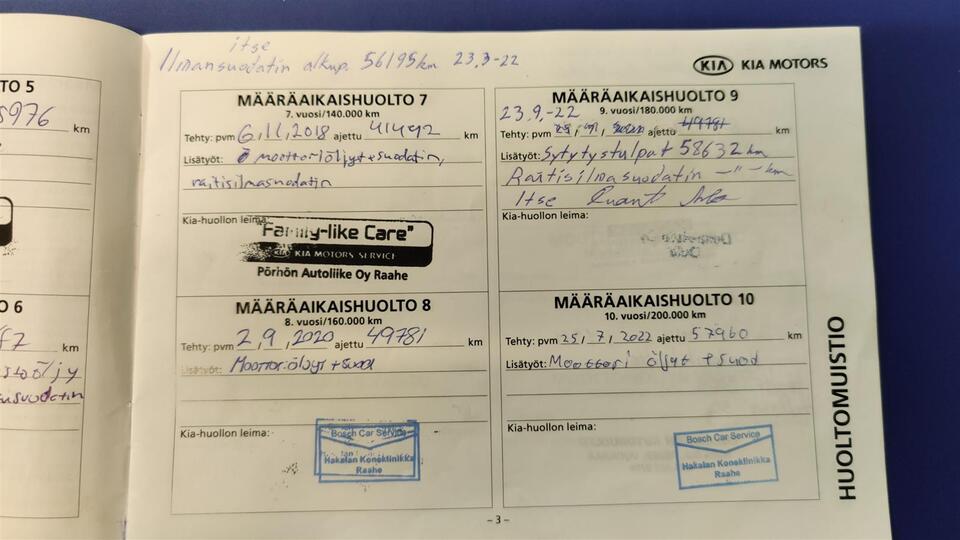 TO 5
5976
km
TO 6
km
itse
Ilmansuodatin alkup. 56195km 23.3-22
KIA KIA MOTORS
MÄÄRÄAIKAISHUOLTO 7
7. vuosi/140.000 km
Tehty: pvm 6,11,2018 ajettu 41492 km
Lisätyöt: moottoriöljyt+suodatin,
raitisilmasuodatin
Kia-huollon leima:
"Family-like Care"
KIA KIA MOTORS SERVICE
Pörhön Autoliike Oy Raahe
MÄÄRÄAIKAISHUOLTO 8
8. vuosi/160.000 km
Tehty: pvm 2,9,2020 ajettu 49781 km
Lisätyöt: Moottoriöljyt +suod
Kia-huollon leima:
Bosch Car Service
Hakalan Koneklinikka
Raahe
MÄÄRÄAIKAISHUOLTO 9
23.9.-22 9. vuosi/180.000 km
Tehty: pvm ajettu 49781 km
Lisätyöt: Sytytystulpat 58632 km
Raitisilmasuodatin -"- km
Itse
Kia-huollon leima:
MÄÄRÄAIKAISHUOLTO 10
10. vuosi/200.000 km
Tehty: pvm 25,7,2022 ajettu 57960 km
Lisätyöt: Moottori öljyt +suod
Kia-huollon leima:
Bosch Car Service
Hakalan Koneklinikka
Raahe
HUOLTOMUISTIO
– 3 –